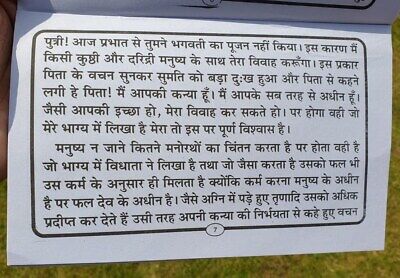 पुत्री! आज प्रभात से तुमने भगवती का पूजन नहीं किया। इस कारण मैं
किसी कुष्ठी और दरिद्री मनुष्य के साथ तेरा विवाह करूँगा। इस प्रकार
पिता के वचन सुनकर सुमति को बड़ा दुःख हुआ और पिता से कहने
लगी हे पिता! मैं आपकी कन्या हूँ। मैं आपके सब तरह से अधीन हूँ।
जैसी आपकी इच्छा हो, मेरा विवाह कर सकते हो। पर होगा वही जो
मेरे भाग्य में लिखा है मेरा तो इस पर पूर्ण विश्वास है।
मनुष्य न जाने कितने मनोरथों का चिंतन करता है पर होता वही है
जो भाग्य में विधाता ने लिखा है तथा जो जैसा करता है उसको फल भी
उस कर्म के अनुसार ही मिलता है क्योंकि कर्म करना मनुष्य के अधीन
है पर फल देव के अधीन है। जैसे अग्नि में पड़े हुए तृणादि उसको अधिक
प्रदीप्त कर देते हैं उसी तरह अपनी कन्या की निर्भयता से कहे हुए वचन
7